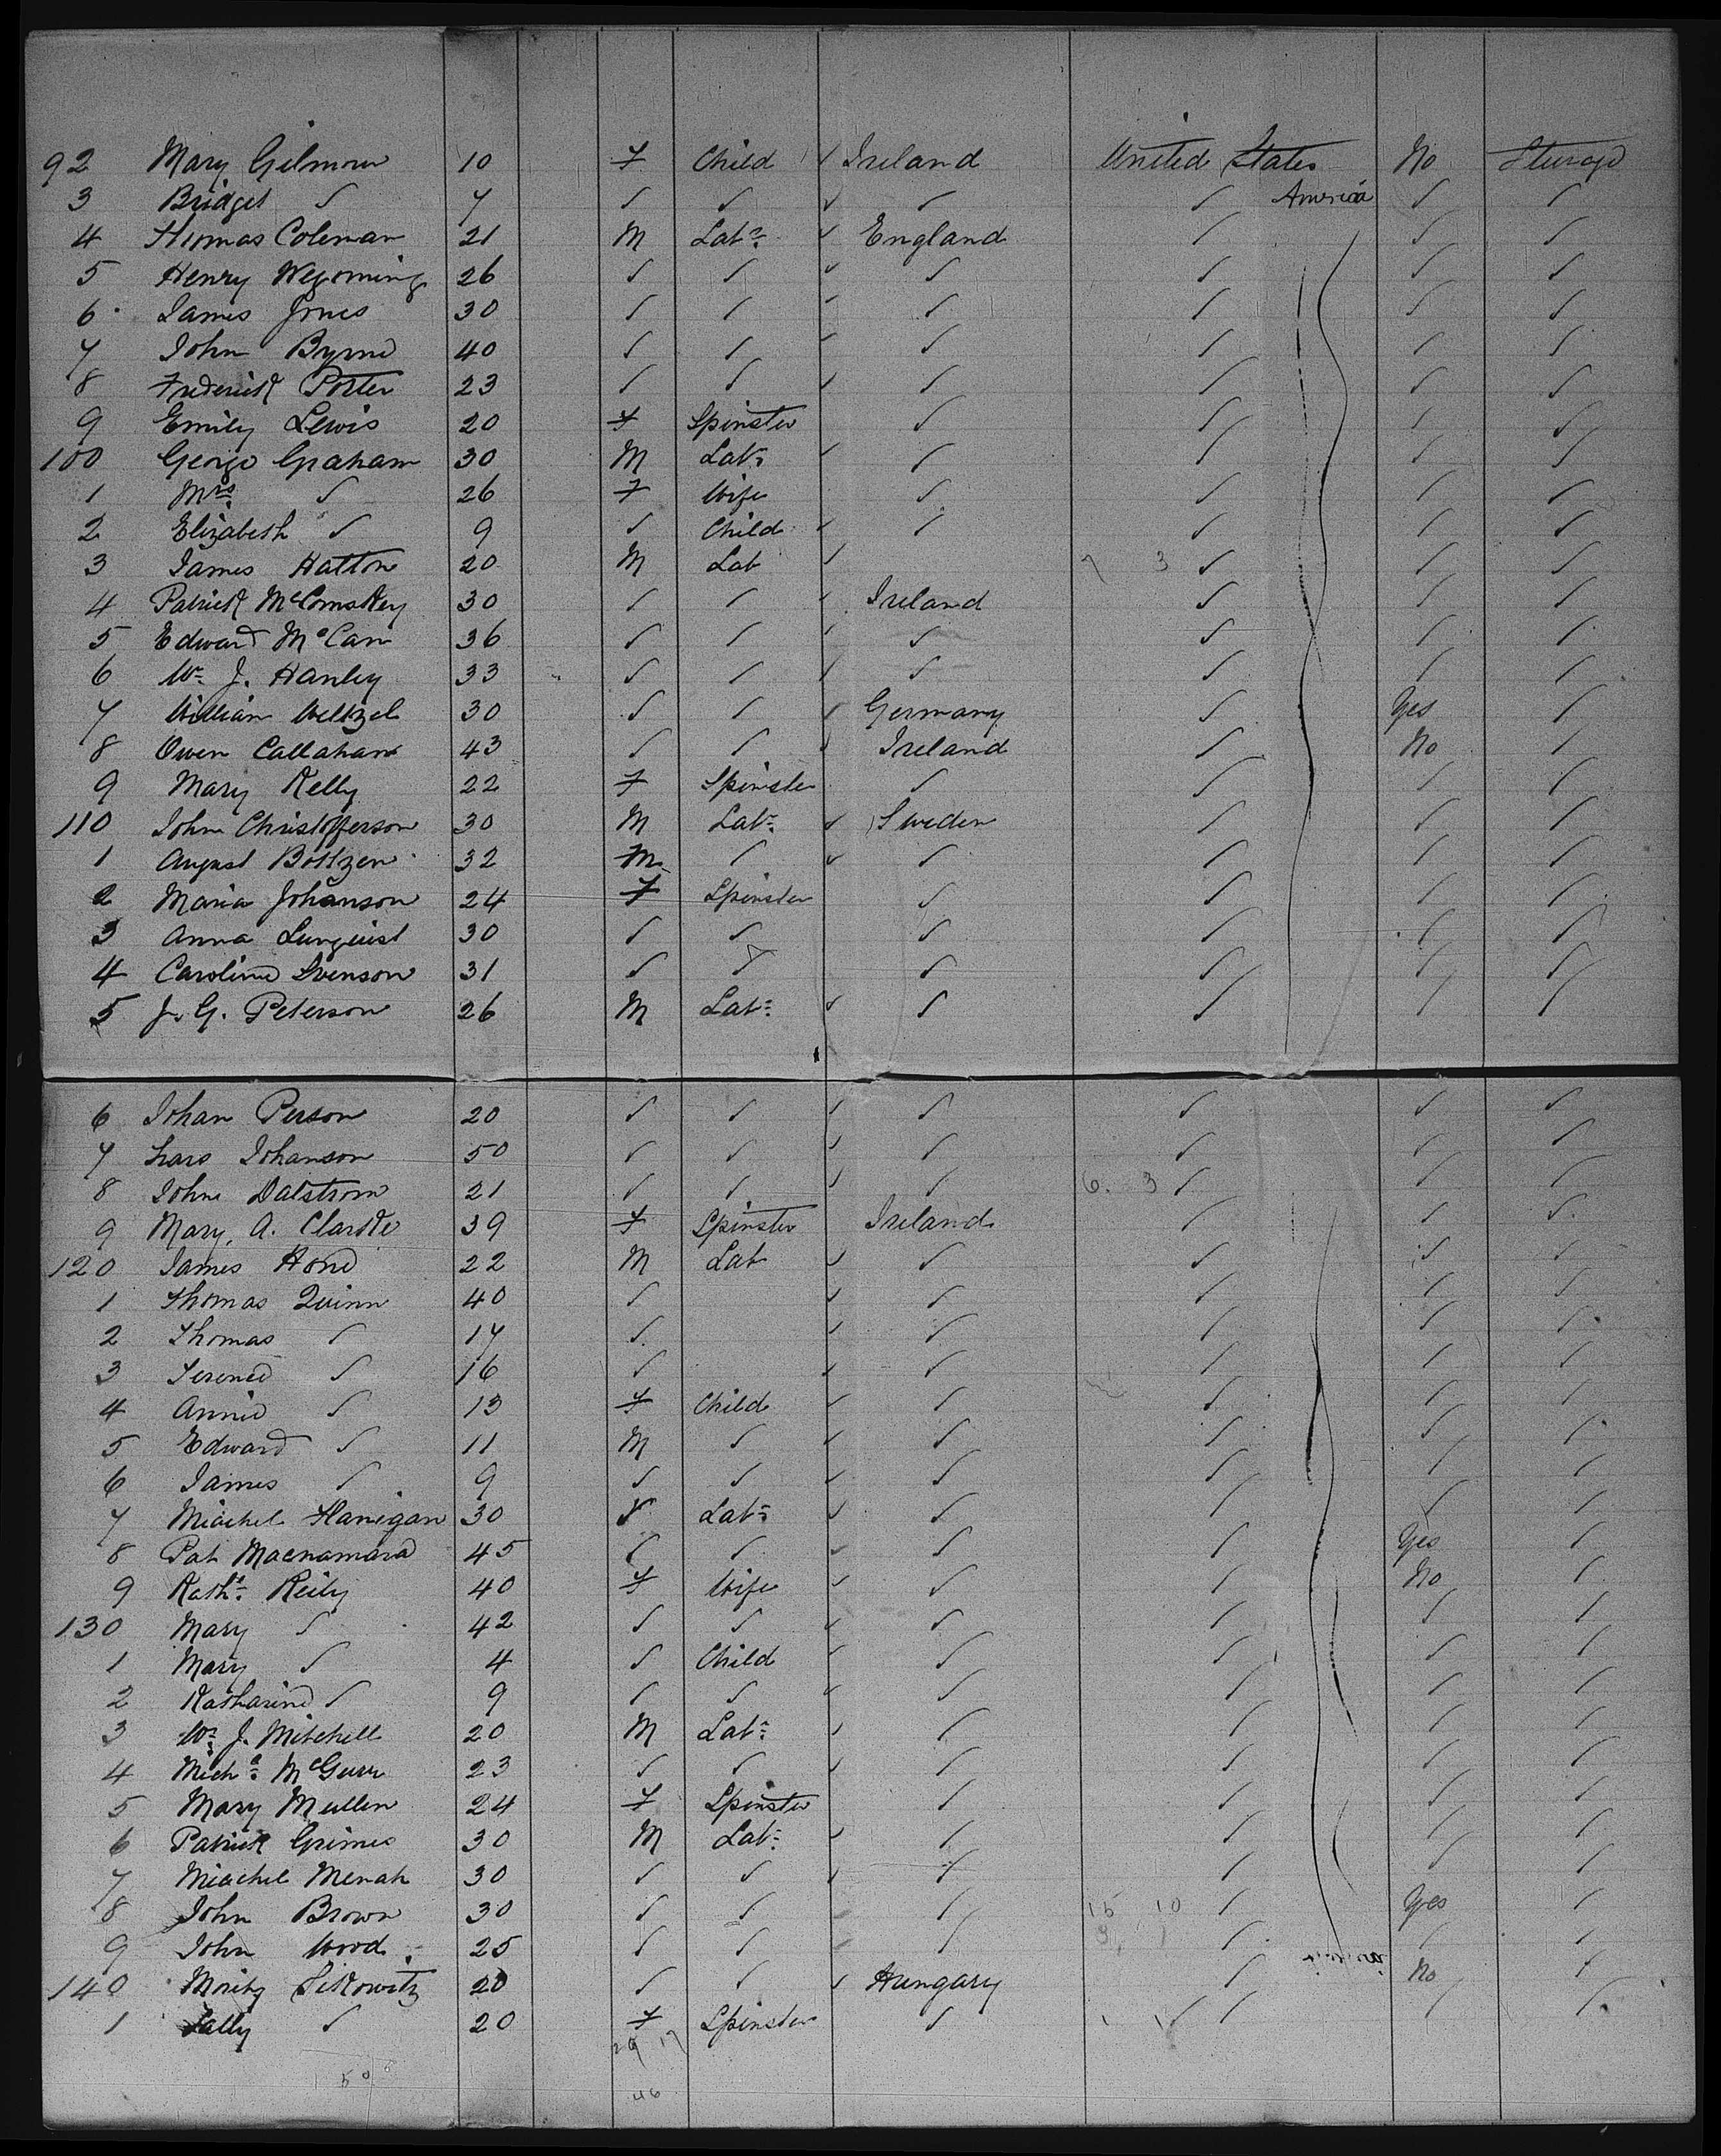 92 Mary Gilmour 10 F Child ✓ Ireland United States No Steerage
3 Bridget ✓ 7 ✓ ✓ ✓ ✓ ✓ America ✓ ✓
4 Thomas Coleman 21 M Labr ✓ England ✓ ✓ ✓
5 Henry Wegoming 26 ✓ ✓ ✓ ✓ ✓ ✓ ✓
6 James Jones 30 ✓ ✓ ✓ ✓ ✓ ✓ ✓
7 John Byrne 40 ✓ ✓ ✓ ✓ ✓ ✓ ✓
8 Frederick Porter 23 ✓ ✓ ✓ ✓ ✓ ✓ ✓
9 Emily Lewis 20 F Spinster ✓ ✓ ✓ ✓
100 George Graham 30 M Labr ✓ ✓ ✓ ✓ ✓
1 Mrs ✓ 26 F Wife ✓ ✓ ✓ ✓
2 Elizabeth ✓ 9 ✓ Child ✓ ✓ ✓ ✓ ✓
3 James Hatton 20 M Lab ✓ 7 3 ✓ ✓ ✓
4 Patrick McComskey 30 ✓ ✓ ✓ Ireland ✓ ✓ ✓
5 Edward McCann 36 ✓ ✓ ✓ ✓ ✓ ✓ ✓
6 Wm J. Hanley 33 ✓ ✓ ✓ ✓ ✓ ✓ ✓
7 William Weltzel 30 ✓ ✓ ✓ Germany ✓ Yes ✓
8 Owen Callahan 43 ✓ ✓ ✓ Ireland ✓ No ✓
9 Mary Kelly 22 F Spinster ✓ ✓ ✓ ✓
110 John Christofferson 30 M Labr ✓ Sweden ✓ ✓ ✓
1 August Boltzen 32 M ✓ ✓ ✓ ✓ ✓ ✓
2 Maria Johanson 24 F Spinster ✓ ✓ ✓ ✓
3 Anna Lunquist 30 ✓ ✓ ✓ ✓ ✓ ✓
4 Caroline Svenson 31 ✓ ✓ ✓ ✓ ✓ ✓
5 J. G. Peterson 26 M Labr ✓ ✓ ✓ ✓ ✓
6 Johan Person 20 ✓ ✓ ✓ ✓ ✓ ✓ ✓
7 Lars Johanson 50 ✓ ✓ ✓ ✓ ✓ ✓ ✓
8 John Dalstrom 21 ✓ ✓ ✓ ✓ 6. 3 ✓ ✓ ✓
9 Mary, A. Clarke 39 F Spinster Ireland ✓ ✓ ✓
120 James Hone 22 M Lab ✓ ✓ ✓ ✓ ✓
1 Thomas Quinn 40 ✓ ✓ ✓ ✓ ✓ ✓
2 Thomas ✓ 17 ✓ ✓ ✓ ✓ ✓ ✓
3 Terence ✓ 16 ✓ ✓ ✓ ✓ ✓ ✓
4 Annie ✓ 13 F Child ✓ ✓ ✓ ✓ ✓
5 Edward ✓ 11 M ✓ ✓ ✓ ✓ ✓ ✓
6 James ✓ 9 ✓ ✓ ✓ ✓ ✓ ✓ ✓
7 Miachel Hanigan 30 ✓ Labr ✓ ✓ ✓ ✓ ✓
8 Pat Macnamara 45 ✓ ✓ ✓ ✓ ✓ Yes ✓
9 Kathe Reily 40 F Wife ✓ ✓ ✓ No ✓
130 Mary ✓ 42 ✓ ✓ ✓ ✓ ✓ ✓ ✓
1 Mary ✓ 4 ✓ Child ✓ ✓ ✓ ✓ ✓
2 Katharine ✓ 9 ✓ ✓ ✓ ✓ ✓ ✓ ✓
3 Wm J. Mitchell 20 M Labr ✓ ✓ ✓ ✓ ✓
4 Michl McGurr 23 ✓ ✓ ✓ ✓ ✓ ✓ ✓
5 Mary Mullen 24 F Spinster ✓ ✓ ✓ ✓
6 Patrick Grimes 30 M Labr ✓ ✓ ✓ ✓ ✓
7 Miachel Menah 30 ✓ ✓ ✓ ✓ ✓ ✓ ✓
8 John Brown 30 ✓ ✓ ✓ ✓ 15 10 ✓ Yes ✓
9 John Wood 25 ✓ ✓ ✓ ✓ ✓ ✓ ✓
140 Moritz 20 ✓ ✓ ✓ Hungary ✓ No ✓
1 Sally ✓ 20 F Spinster ✓ 1 1 ✓ ✓ ✓
29 17
46